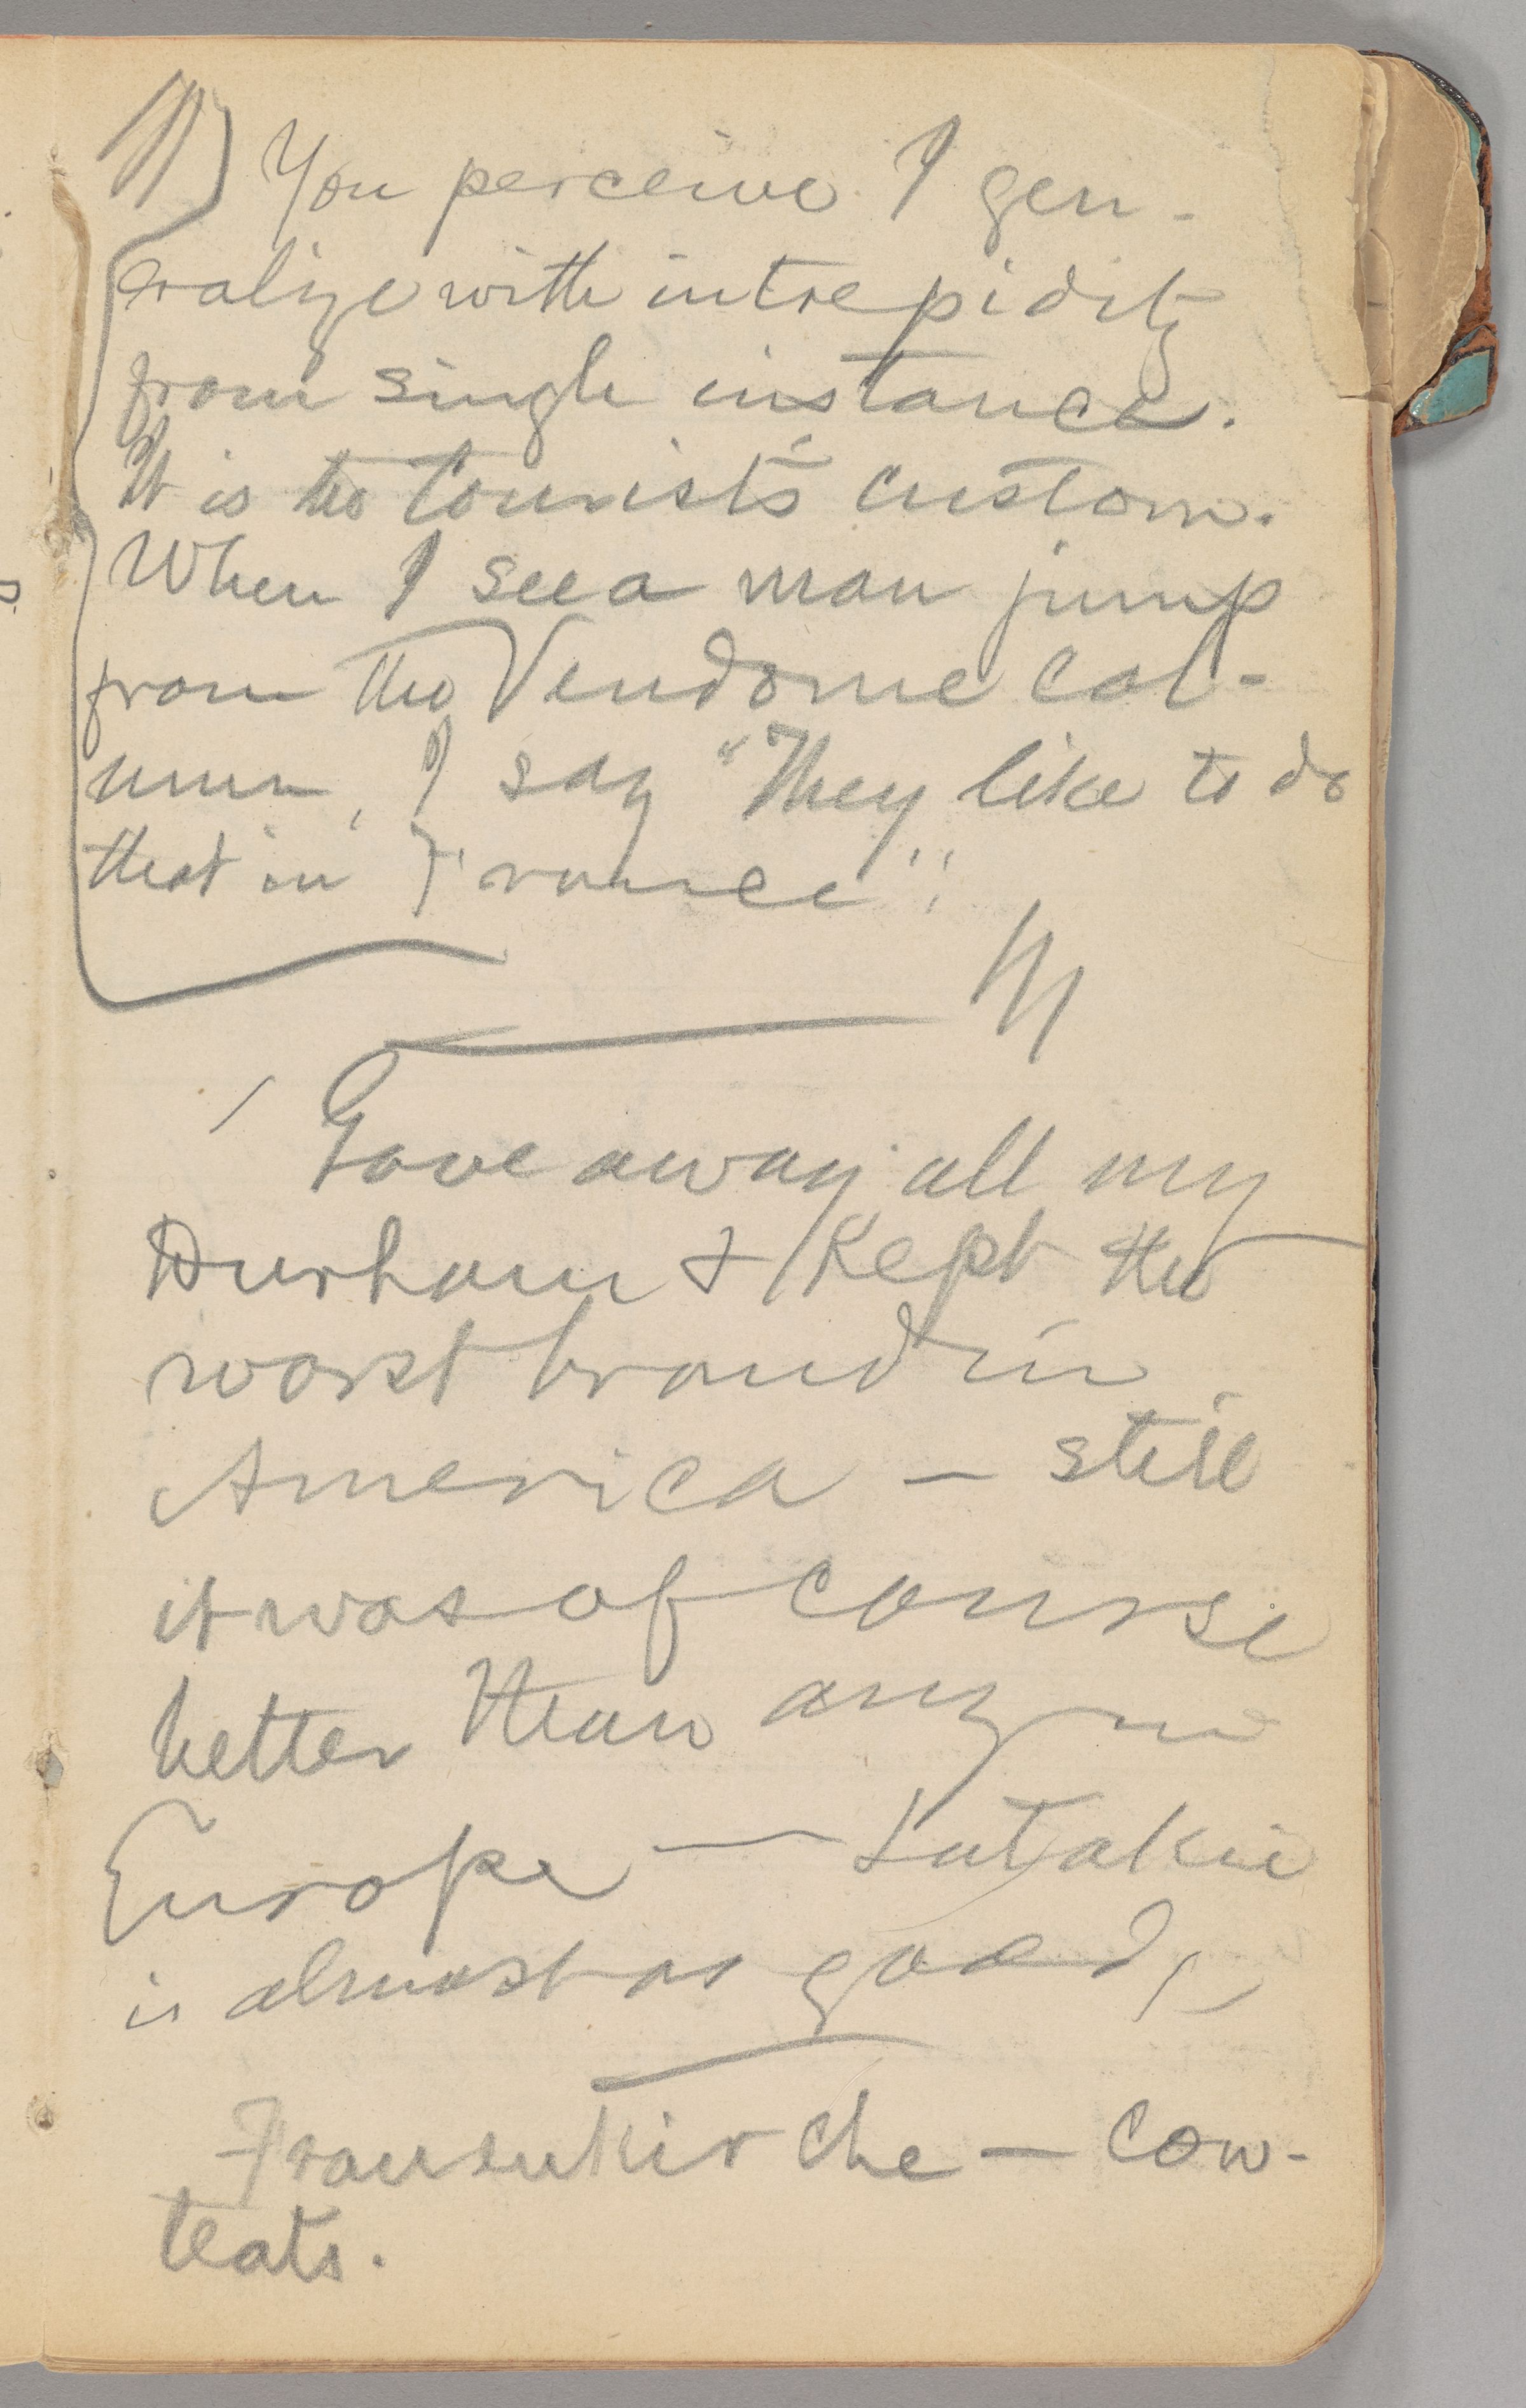 You perceive I gen-
eralize with intrepidity
from single instances.
It is the tourist's custom.
When I see a man jump
from the Vendome col-
umn, I say "They like to do
that in France".
Gave away all my
Durham & kept the
worst brand in
America — still
it was of course
better than any in
Europe — Latakie
is almost as good,
Frauenkirche — cow-
teats.